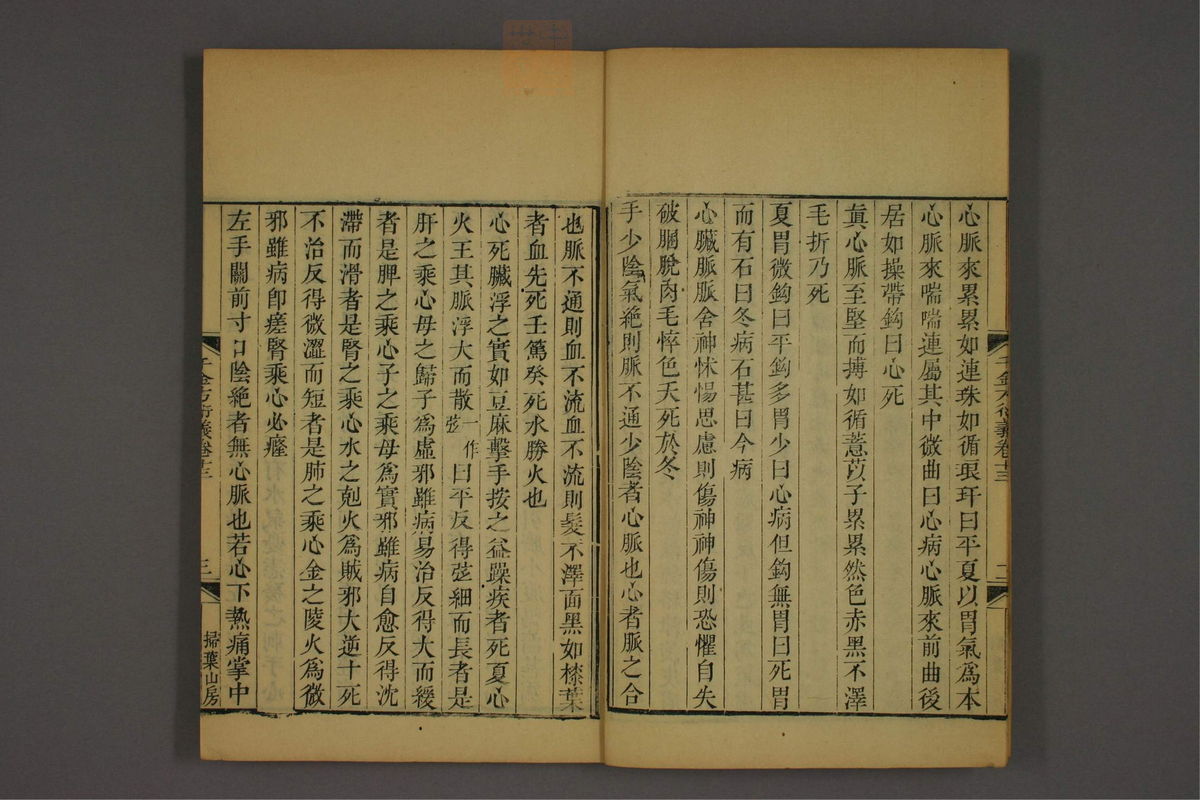 心脈來累累如連珠如循琅玕曰平夏以胃氣為本
心脈來喘喘連屬其中微曲曰心病心脈來前曲後
居如操帶鈎曰心死
眞心脈至堅而搏如循薏苡子累累然色赤黑不澤
毛折乃死
夏胃微鈎曰平鈎多胃少曰心病但鈎無胃曰死胃
而有石曰冬病石甚曰今病
心臟脈脈舍神怵惕思慮則傷神神傷則恐懼自失
破䐃脫肉毛悴色夭死於冬
手少陰氣絶則脈不通少陰者心脈也心者脈之合
千金方衍義卷十三
二
也脈不通則血不流血不流則髮不澤面黑如漆葉
者血先死壬篤癸死水勝火也
心死臟浮之實如豆麻擊手按之益躁疾者死夏心
火王其脈浮大而散一作弦曰平反得弦細而長者是
肝之乘心母之歸子為虛邪雖病易治反得大而緩
者是脾之乘心子之乘母為實邪雖病自愈反得沈
滯而滑者是腎之乘心水之尅火為賊邪大逆十死
不治反得微澀而短者是肺之乘心金之陵火為微
邪雖病即瘥腎乘心必癃
左手關前寸口陰絶者無心脈也若心下熱痛掌中
千金方衍義卷十三
三
掃葉山房